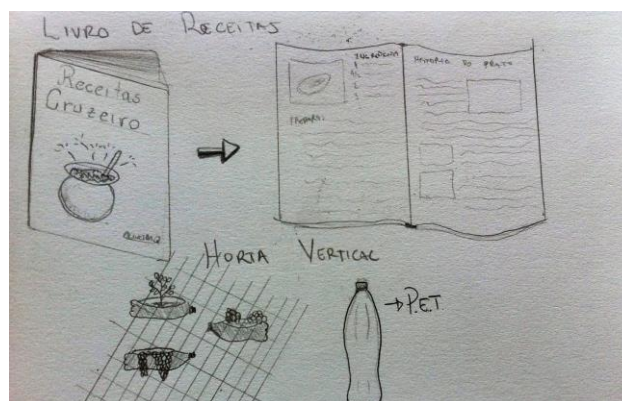 LIVRO DE RECEITAS
Receitas
Cruzeiro
INGREDIENTES
PREPARO:
HISTÓRIA DO PRATO
HORTA VERTICAL
P.E.T